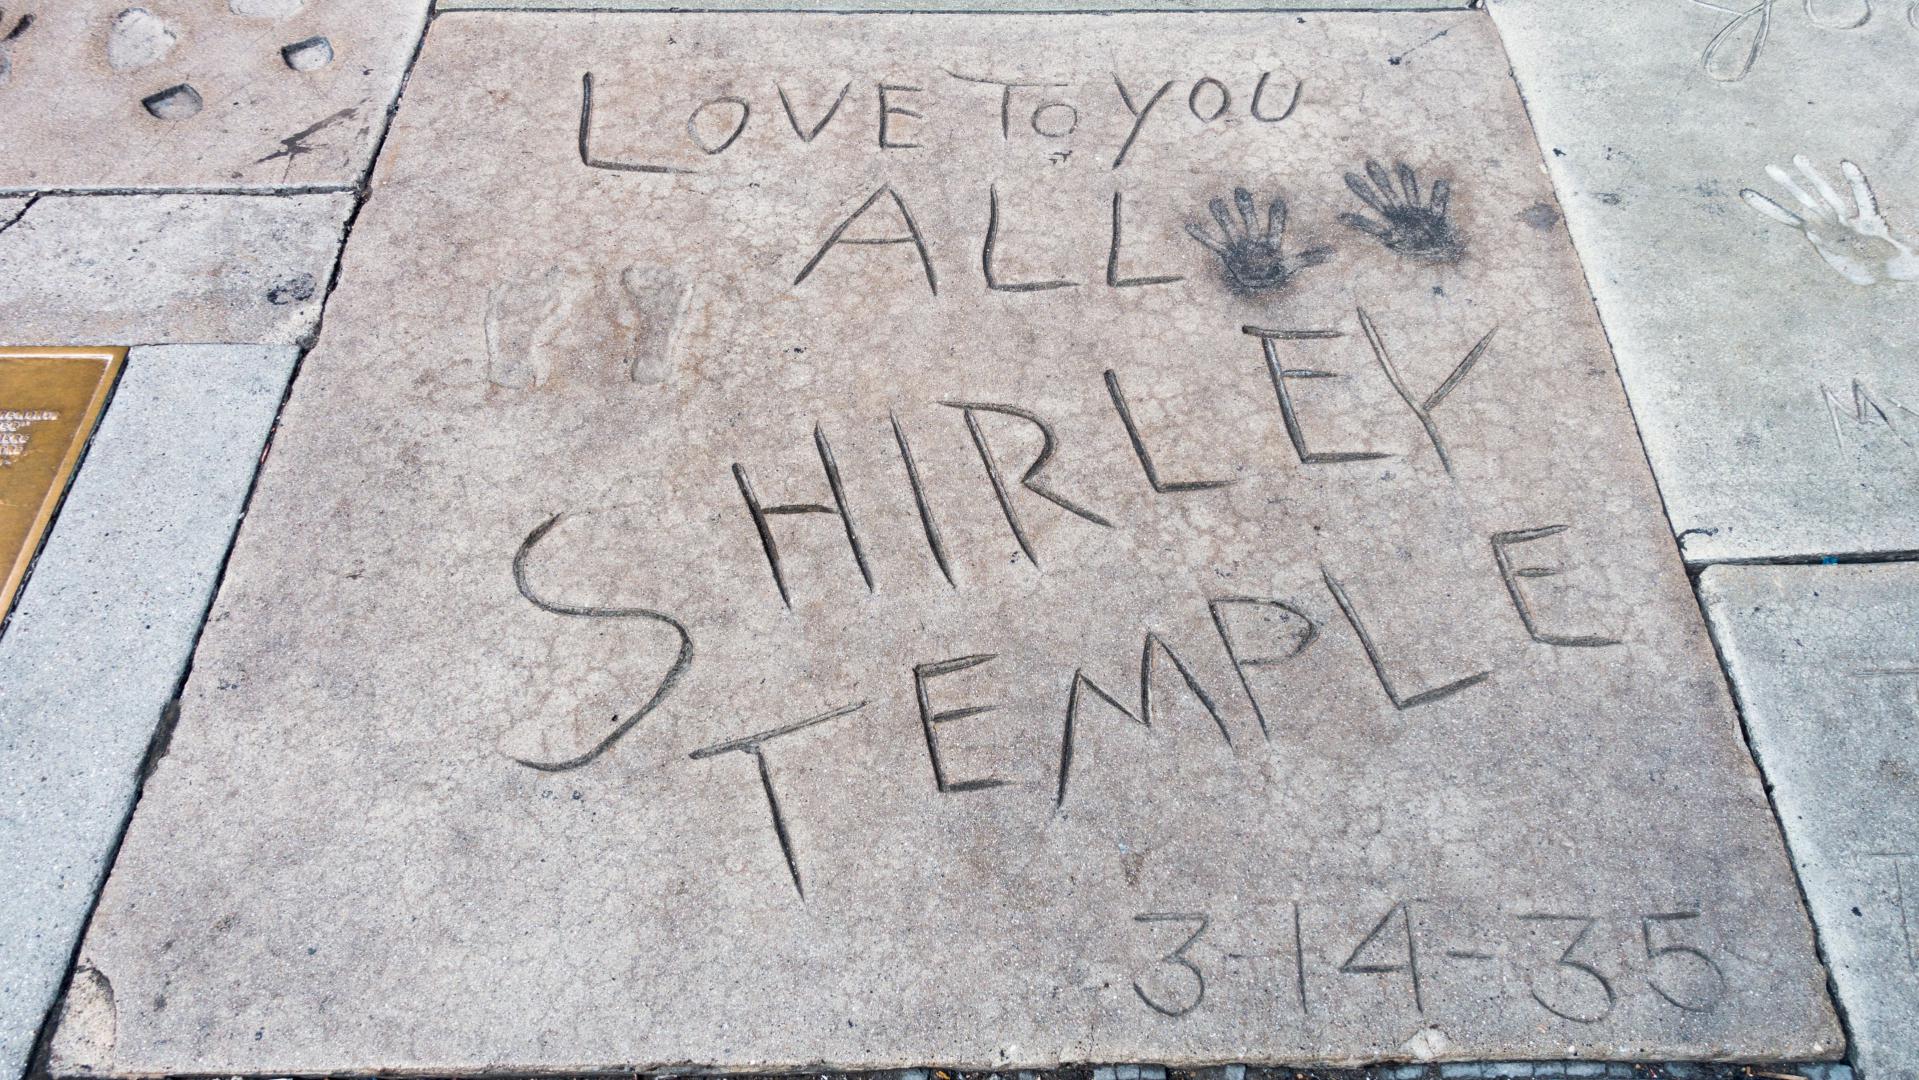 LOVE TO YOU
ALL
SHIRLEY
TEMPLE
3-14-35